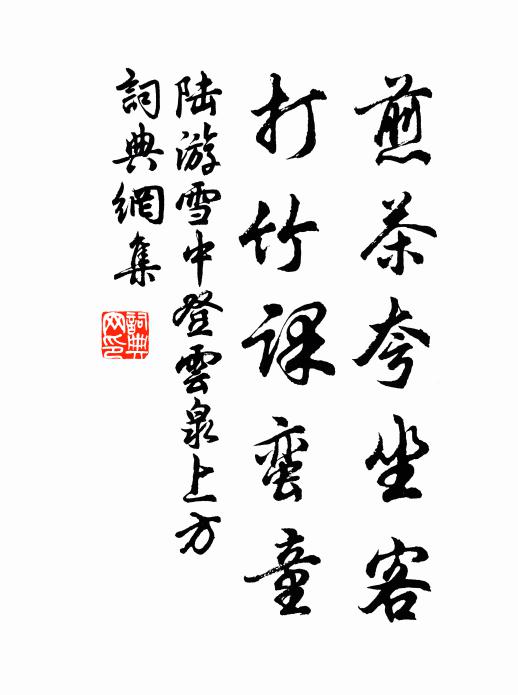 煎茶夸坐客
打竹課蛮童
陆游雪中登雲泉上方
詞典網集
詞典網印